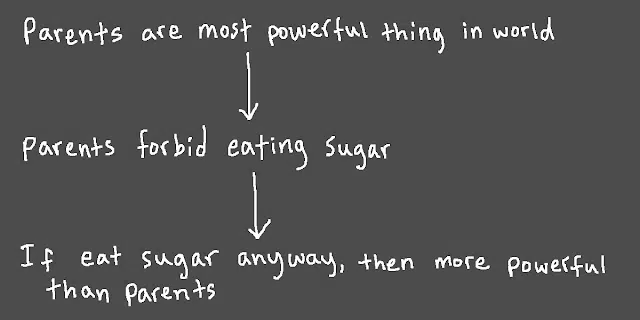 Parents are most powerful thing in world
Parents forbid eating sugar
If eat sugar anyway, then more powerful
than parents